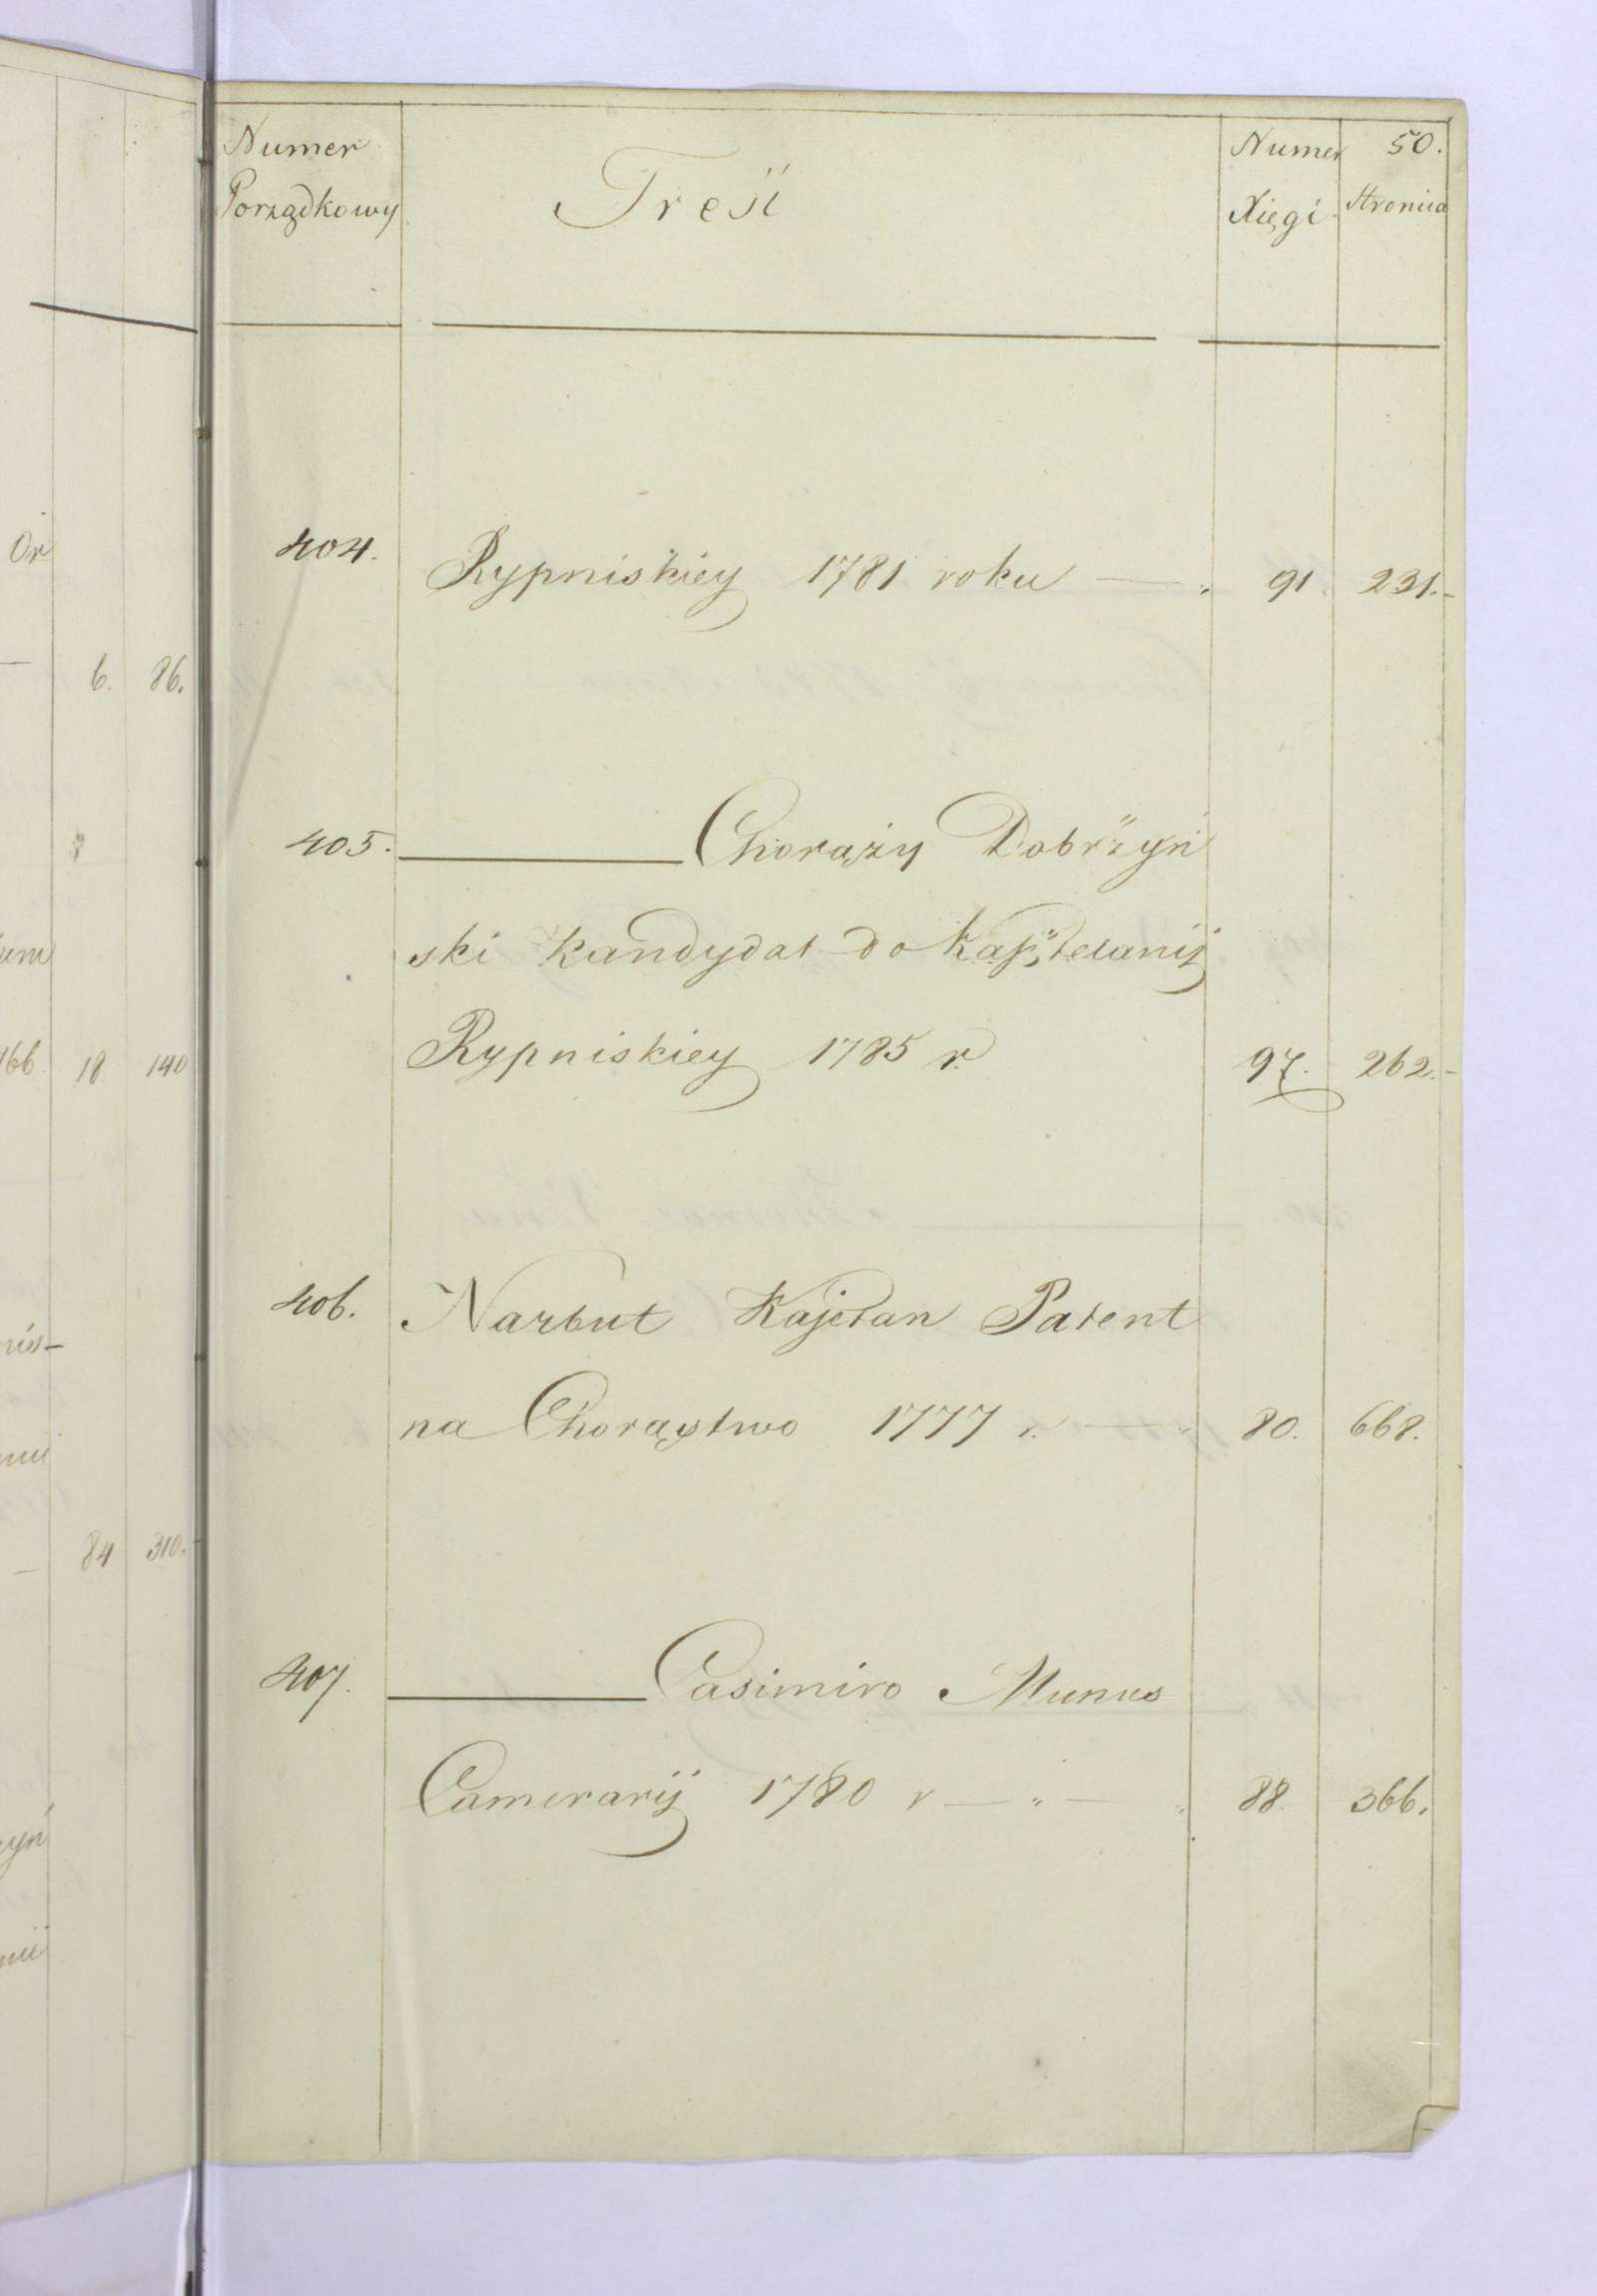 Numer
Porządkowy
Treść
Numer
Xięgi
50.
Stronica
404. Rypniskiey 1781 roku — 91. 231.
405. ——— Chorąży Dobrzyń
ski Kandydat do Kasztelanij
Rypniskiey 1785 r. 97. 262.
406. Narbut Kajetan Patent
na Chorąstwo 1777 r. — 80. 668.
407. ——— Casimiro Munus
Camerarij 1780 r — " — 88. 366.
Or
6. 86.
166. 18 140
84 310.